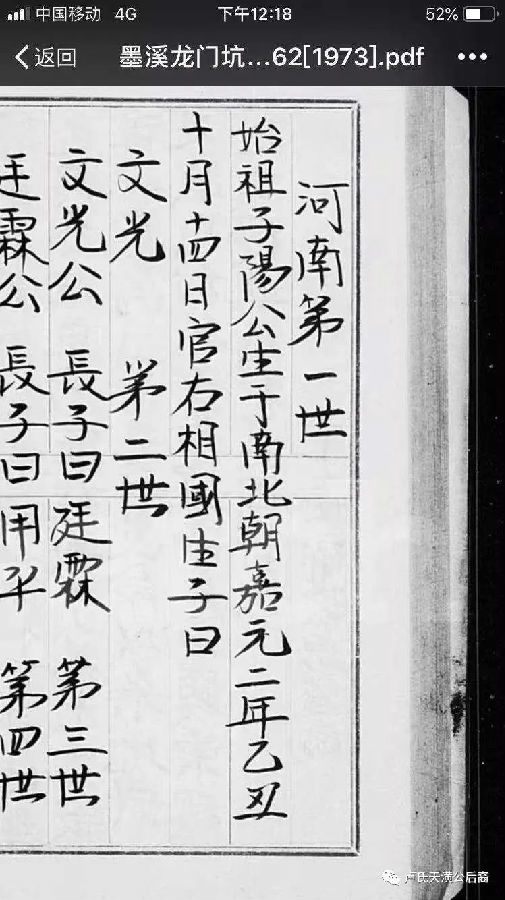 中国移动 4G 下午12:18 52%
返回 墨溪龙门坑...62[1973].pdf •••
河南第一世
始祖子陽公生于南北朝嘉元二年乙丑
十月十四日官右相國生子曰
文光 第二世
文光公 長子曰廷霖 第三世
廷霖公 長子曰用平 第四世
卢氏天潢公后裔